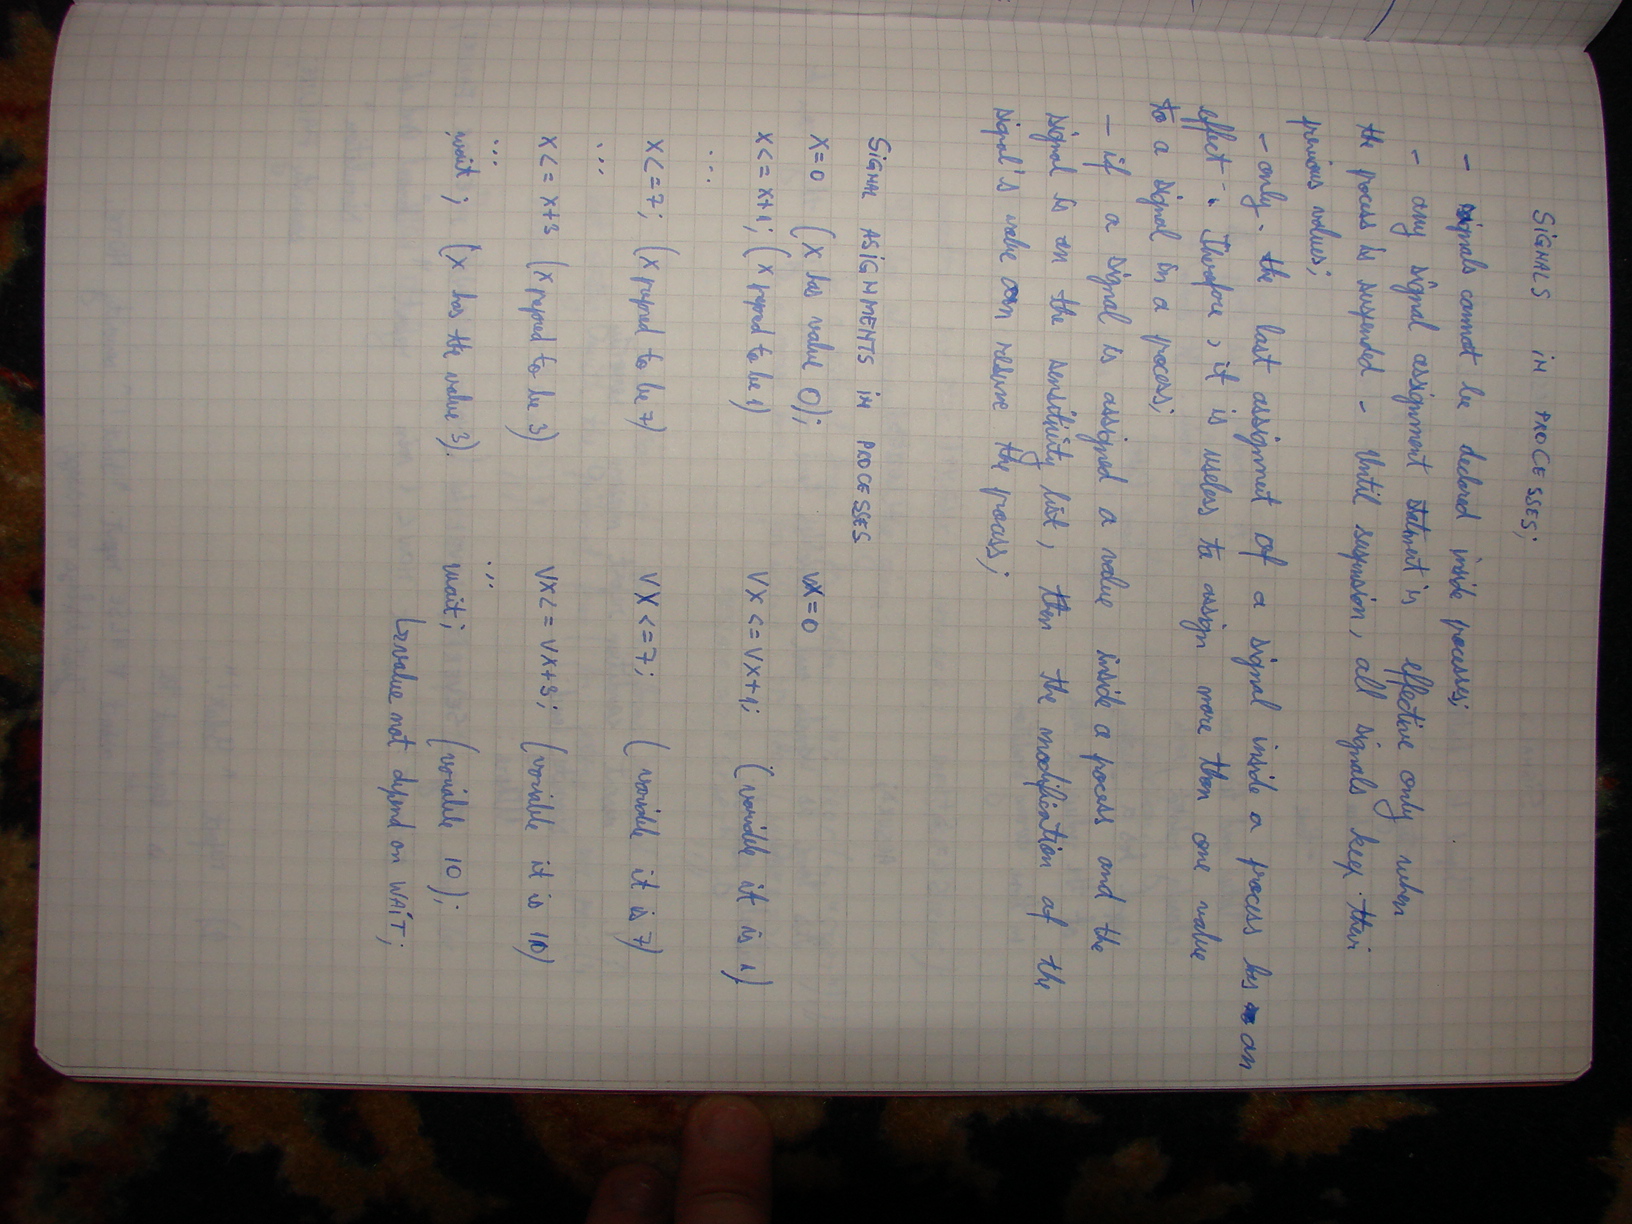 SIGNALS IN PROCESSES;
- signals cannot be declared inside processes;
- any signal assignment statment is effective only when
the process is suspended - Until suspension, all signals keep their
previous values;
- only the last assigment of a signal inside a process has an
effect. Therefore, it is useless to assign more then one value
to a signal in a process;
- if a signal is assigned a value inside a process and the
signal is on the sensitivity list, then the modification of the
signal's value can resume the process;
SIGNAL ASIGNMENTS IN PROCESSES
X=0 (X has value 0); VX=0
X<=X+1; (X prepred to be 1) VX<=VX+1; (variable it is 1)
...
X<=7; (X prepred to be 7) VX<=7; (variable it is 7)
...
X<=X+3 (X prepred to be 3) VX<=VX+3; (variable it is 10)
... ...
wait; (X has the value 3). wait; (variable 10);
value not depend on WAIT;